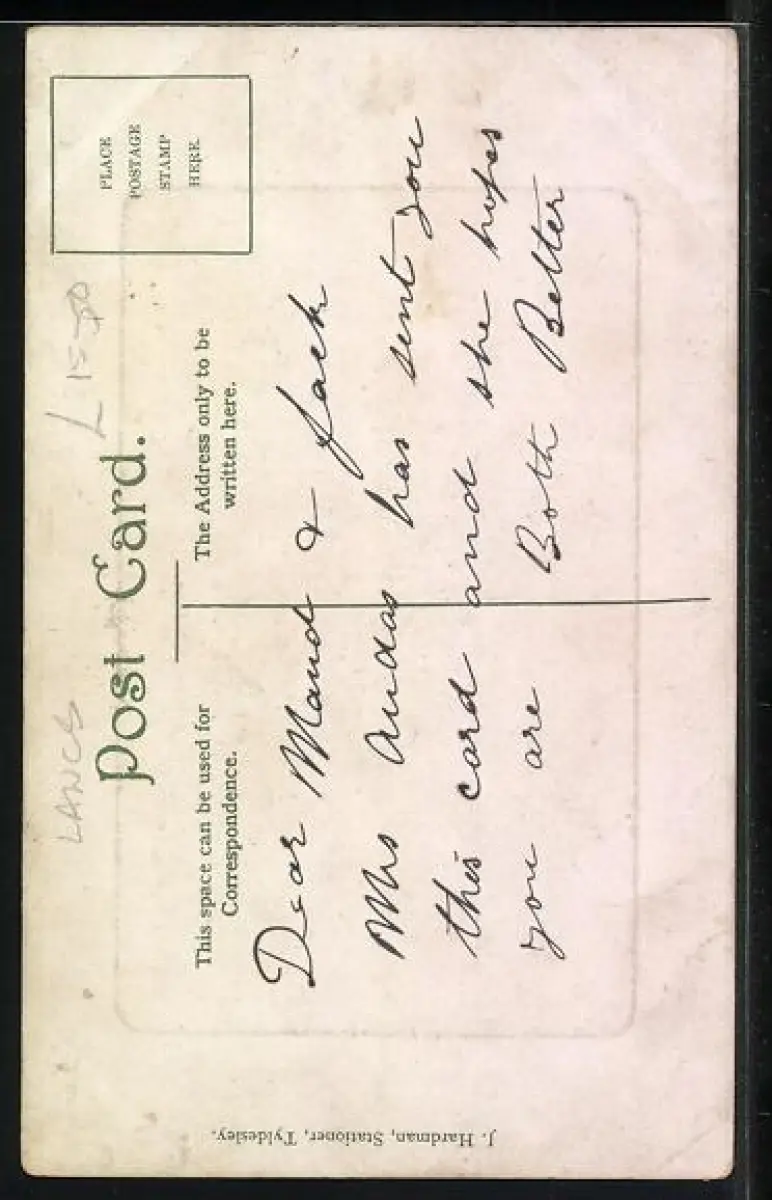 LANCS
Post Card.
PLACE
POSTAGE
STAMP
HERE
This space can be used for
Correspondence.
The Address only to be
written here.
Dear Maud & Jack
Mrs Andas has sent you
this card and she hopes
you are Both Better
J. Hardman, Stationer, Tyldesley.